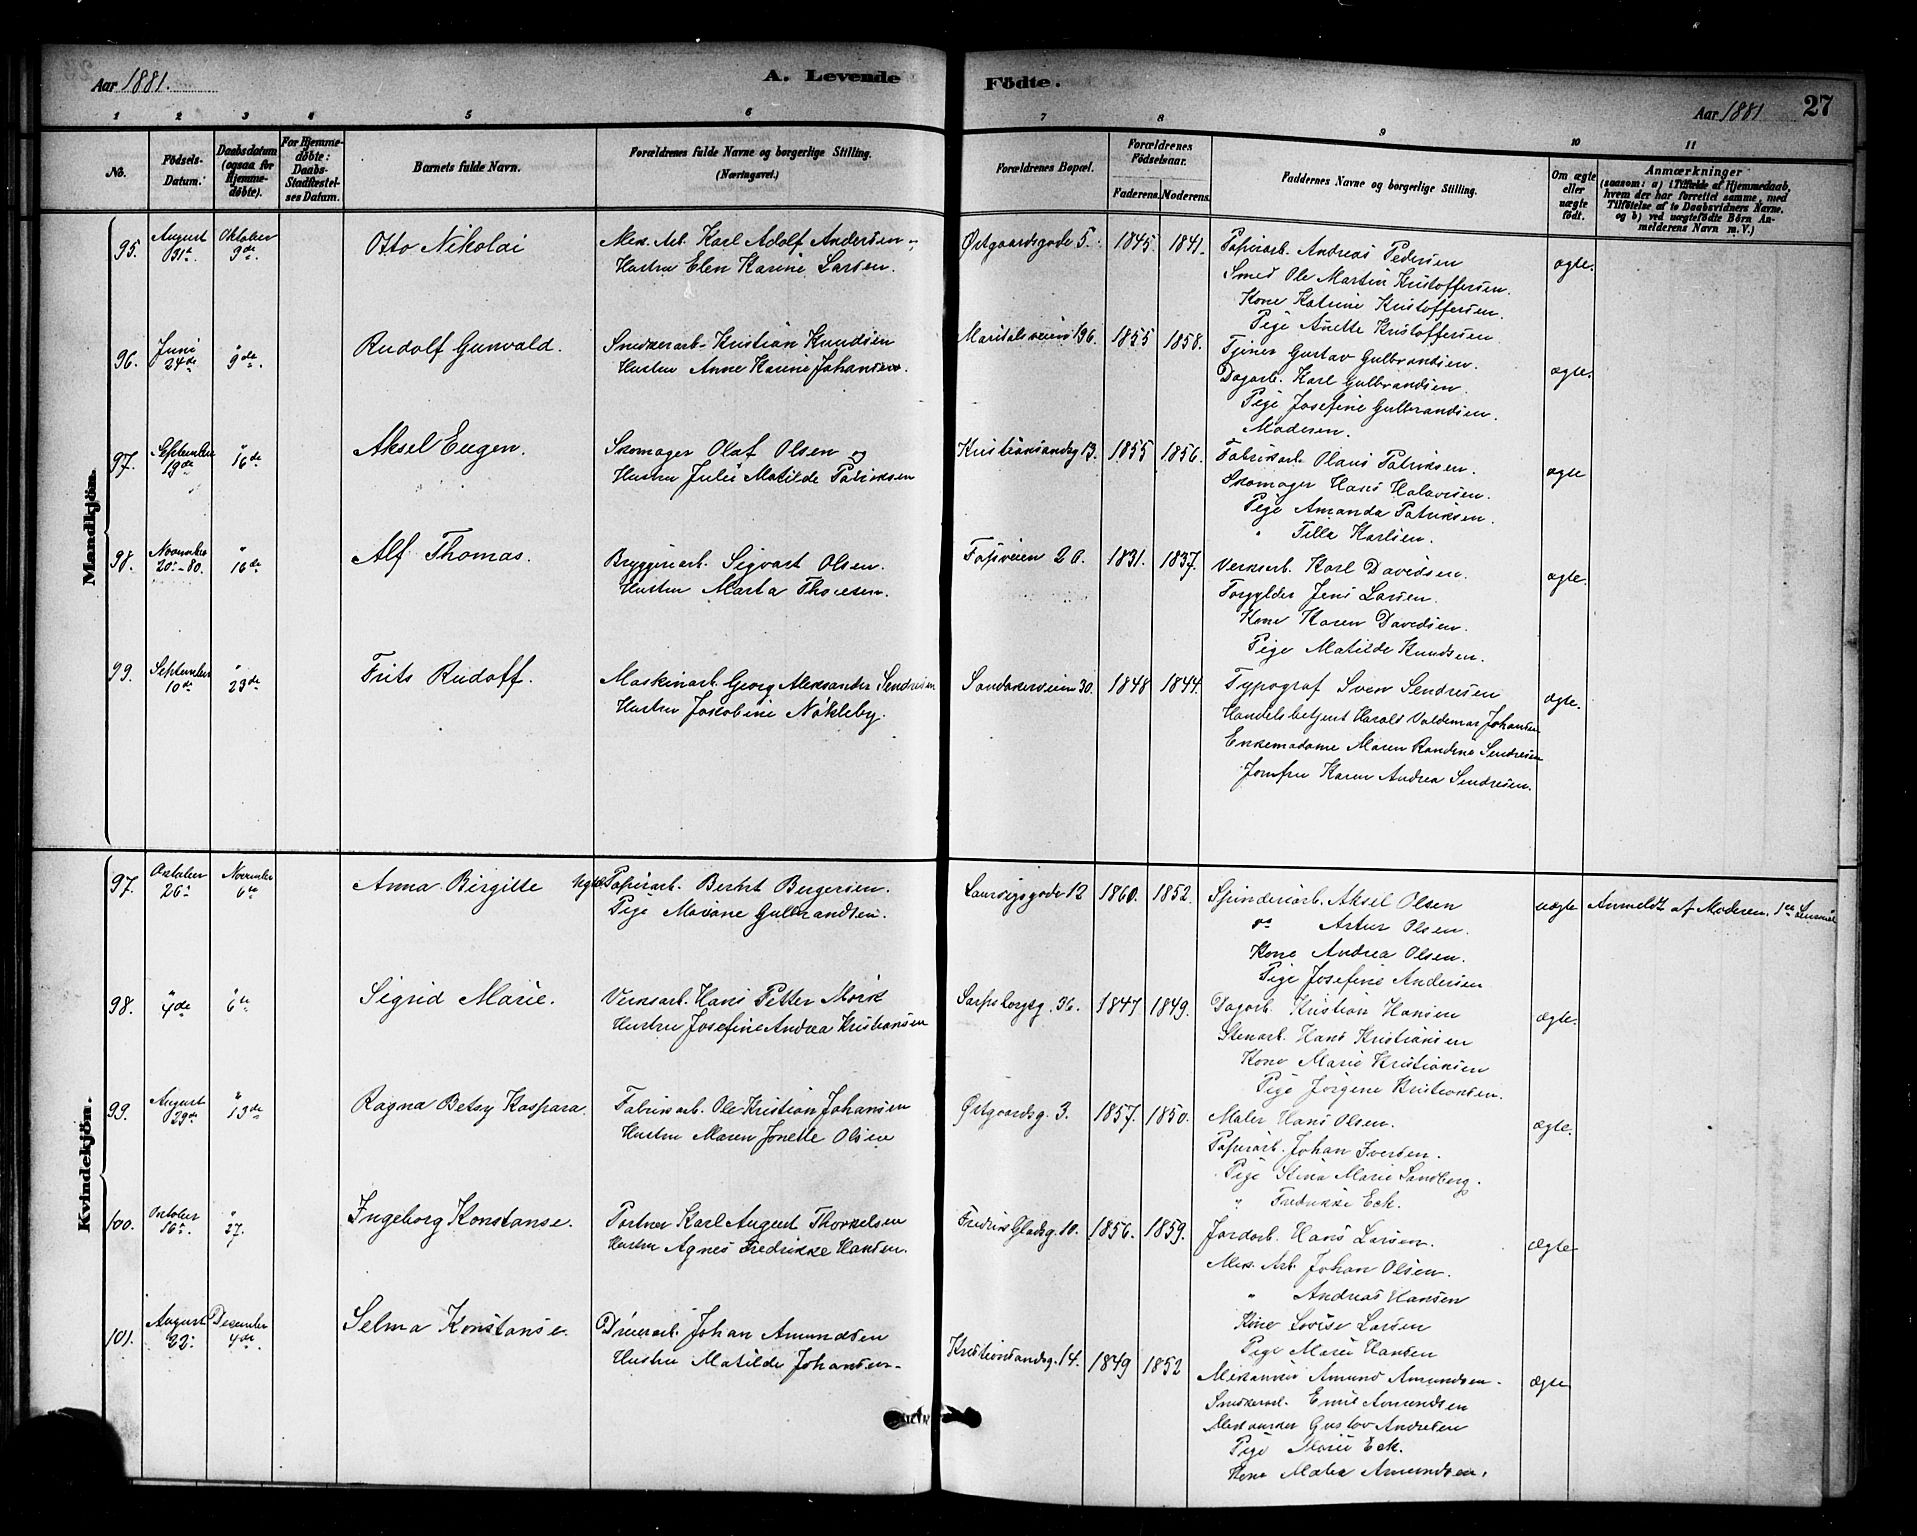 Aar 1881.
A. Levende
Födte.
Aar 1881
27
1 2 3 4 5 6 7 8 9 10 11
No.
Födsels-Datum.
Daabsdatum (ogsaa for Hjemmedöbte).
For Hjemmedöbte: Daabs-Stadfæstelses Datum.
Barnets fulde Navn.
Forældrenes fulde Navne og borgerlige Stilling. (Næringsvei.)
Forældrenes Bopæl.
Forældrenes Födselsaar.
Faderens. Moderens.
Faddernes Navne og borgerlige Stilling.
Om ægte eller uægte födt.
Anmærkninger
(saasom: a) i Tilfælde af Hjemmedaab, hvem der har forrettet samme, med Tilföielse af to Daabsvidners Navne, og b) ved uægtefödte Börn Anmelderens Navn m. V.)
Mandkjön.
95. August 31te Oktober 9de. Otto Nikolai
Mek. Arb. Karl Adolf Andersen
Hustru Elen Karine Larsen.
Östgaardsgade 5. 1845. 1841.
Papirarb. Andreas Pedersen
Smed Ole Martin Kristoffersen.
Kone Katrine Kristoffersen.
Pige Anette Kristoffersen.
ægte.
96. Juni 24de " 9de. Rudolf Gunvald.
Snedkerarb. Kristian Knudsen
Hustru Anne Karine Johansen.
Maridalsveien 196. 1855 1858.
Tjener Gustav Gulbrandsen.
Dagarb. Karl Gulbrandsen.
Pige Josefine Gulbrandsen.
Moderen.
ægte.
97. September 19de " 16de Aksel Eugen.
Skomager Olaf Olsen og
Hustru Julie Matilde Patriksen
Kristiansandsg 13. 1855 1856.
Fabrikarb. Olaus Patriksen.
Skomager Hans Halvorsen.
Pige Amanda Patriksen.
" Tilla Karlsen.
ægte
98. November 20-80. " 16de Alf Thomas.
Bryggeriarb. Sigvart Olsen.
Hustru Marta Thoresen.
Fossveien 20. 1831. 1837.
Verksarb. Karl Davidsen.
Forgylder Jens Larsen.
Kone Karen Davidsen.
Pige Matilde Knudsen.
ægte.
99. September 10de " 23de Frits Rudolf.
Maskinarb. Georg Aleksander Sendresen
Hustru Jakobine Nökleby.
Sandakerveien 30. 1848 1844.
Typograf Sven Sendresen
Handelsbetjent Harald Valdemar Johansen
Enkemadame Maren Randine Sendresen
Jomfru Karen Andrea Sendresen.
ægte.
Kvindekjön.
97. Oktober 26 November 6te Anna Birgitte
Ugte Papirarb. Berht Bergersen.
Pige Mariane Gulbrandsen.
Laurvigsgade 12 1860. 1852.
Spinderiarb. Aksel Olsen
do Artur Olsen.
Kone Andrea Olsen.
Pige Josefine Andersen
uægte
Anmeldt af Moderen. 1ste
98. " 4de " 6te Sigrid Marie.
Verksarb. Hans Petter Mörk
Hustru Josefine Andrea Kristiansen
Sarpsborgg. 36. 1847 1849.
Dagarb. Kristian Hansen
Stenarb. Hans Kristiansen
Kone Marie Kristiansen
Pige Jörgene Kristiansen.
ægte.
99. August 29de " 13de Ragna Betsy Kaspara.
Fabrikarb. Ole Kristian Johansen
Hustru Maren Jonette Olsen
Östgaardsg. 3. 1857. 1850.
Maler Hans Olsen.
Papirarb. Johan Iversen.
Pige Stina Marie Sandberg.
" Fredrikke Eck.
ægte.
100. Oktober 16. " 27. Ingeborg Konstanse.
Portner Karl August Thorkelsen
Hustru Agnes Fredrikke Hansen.
Fredriks Gladsg. 10. 1856. 1859.
Jordarb. Hans Larsen.
Mek. Arb. Johan Olsen.
" Andreas Hansen
Kone Lovise Larsen
Pige Marie Hansen
ægte
101. August 22. December 4de. Selma Konstanse.
Dreierarb. Johan Amundsen
Hustru Matilde Johansen.
Kristiansandsg. 14. 1849 1852
Mekanker Amund Amundsen.
Snedkerarb. Emil Amundsen
Mekaniker Gustav Andresen
Pige Marie Eck.
Kone Malia Amundsen.
ægte